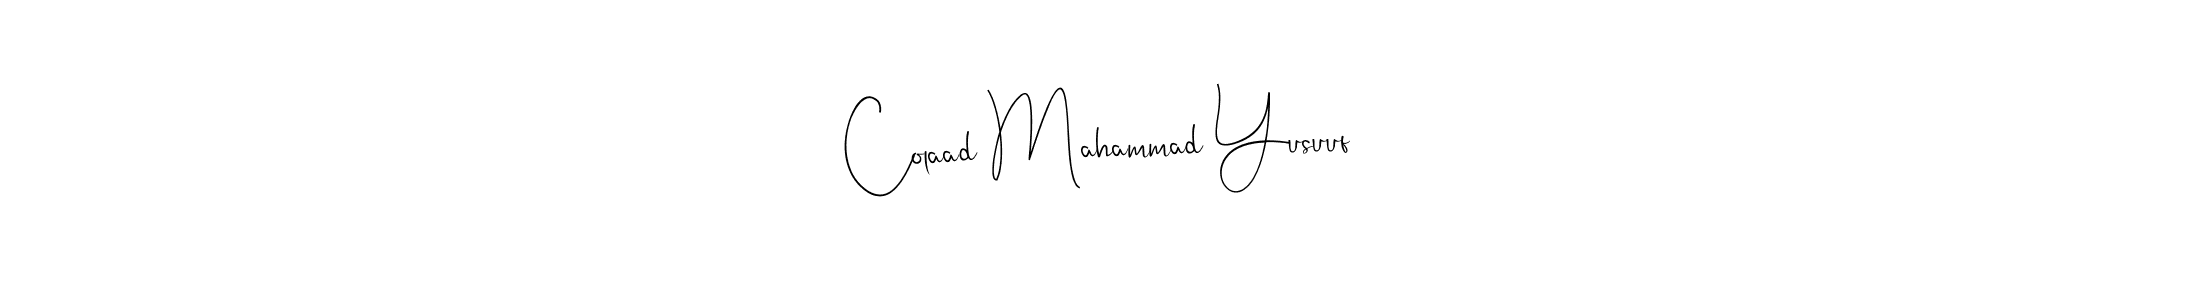 Cqaad Mahammad Yusuuf